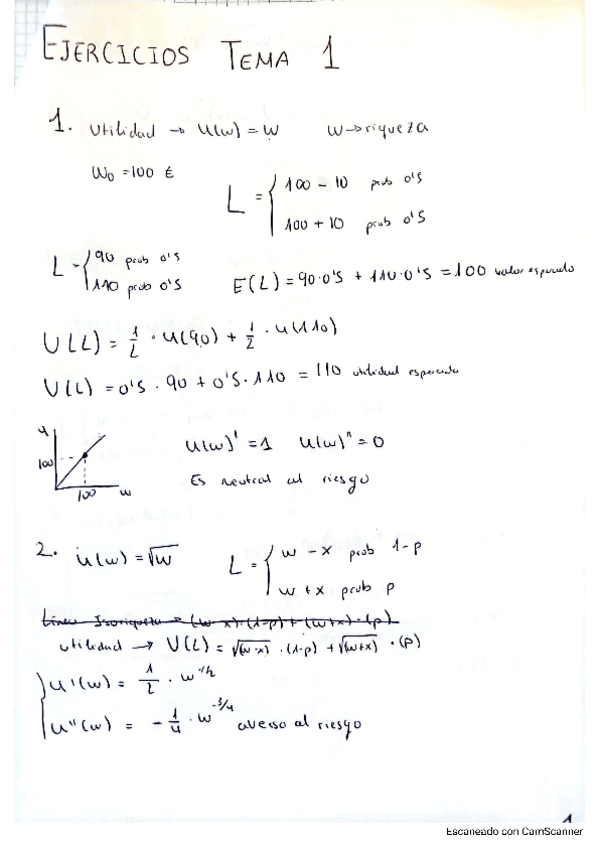 EJERCICIOS TEMA 1
1. Utilidad → U(w) = w w → riqueza
W₀ = 100 €
L = { 100 - 10 prob 0'5
100 + 10 prob 0'5
L - { 90 prob 0'5
110 prob 0'5
E(L) = 90·0'5 + 110·0'5 = 100 valor esperado
U(L) = 1/2 · u(90) + 1/2 · u(110)
U(L) = 0'5 · 90 + 0'5 · 110 = 110 utilidad esperada
u
100
100 w
u(w)' = 1 u(w)'' = 0
Es neutral al riesgo
2. u(w) = √w
L = { w - x prob 1-p
w + x prob p
Línea Isoriqueza = (w-x)·(1-p) + (w+x)·(p)
utilidad → U(L) = √(w-x) · (1-p) + √(w+x) · (p)
u'(w) = 1/2 · w^-1/2
u''(w) = - 1/4 · w^-3/4 averso al riesgo
1
Escaneado con CamScanner